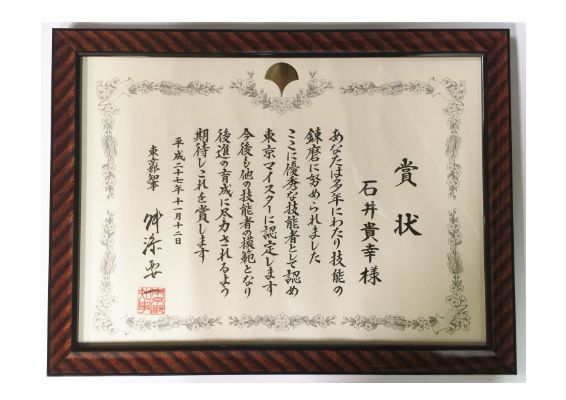 賞状
石井貴幸様
あなたは多年にわたり技能の
錬磨に努められました
ここに優秀な技能者として認め
東京マイスターに認定します
今後も他の技能者の模範となり
後進の育成に尽力されるよう
期待しこれを賞します
平成二十七年十一月十二日
東京都知事
舛添要一